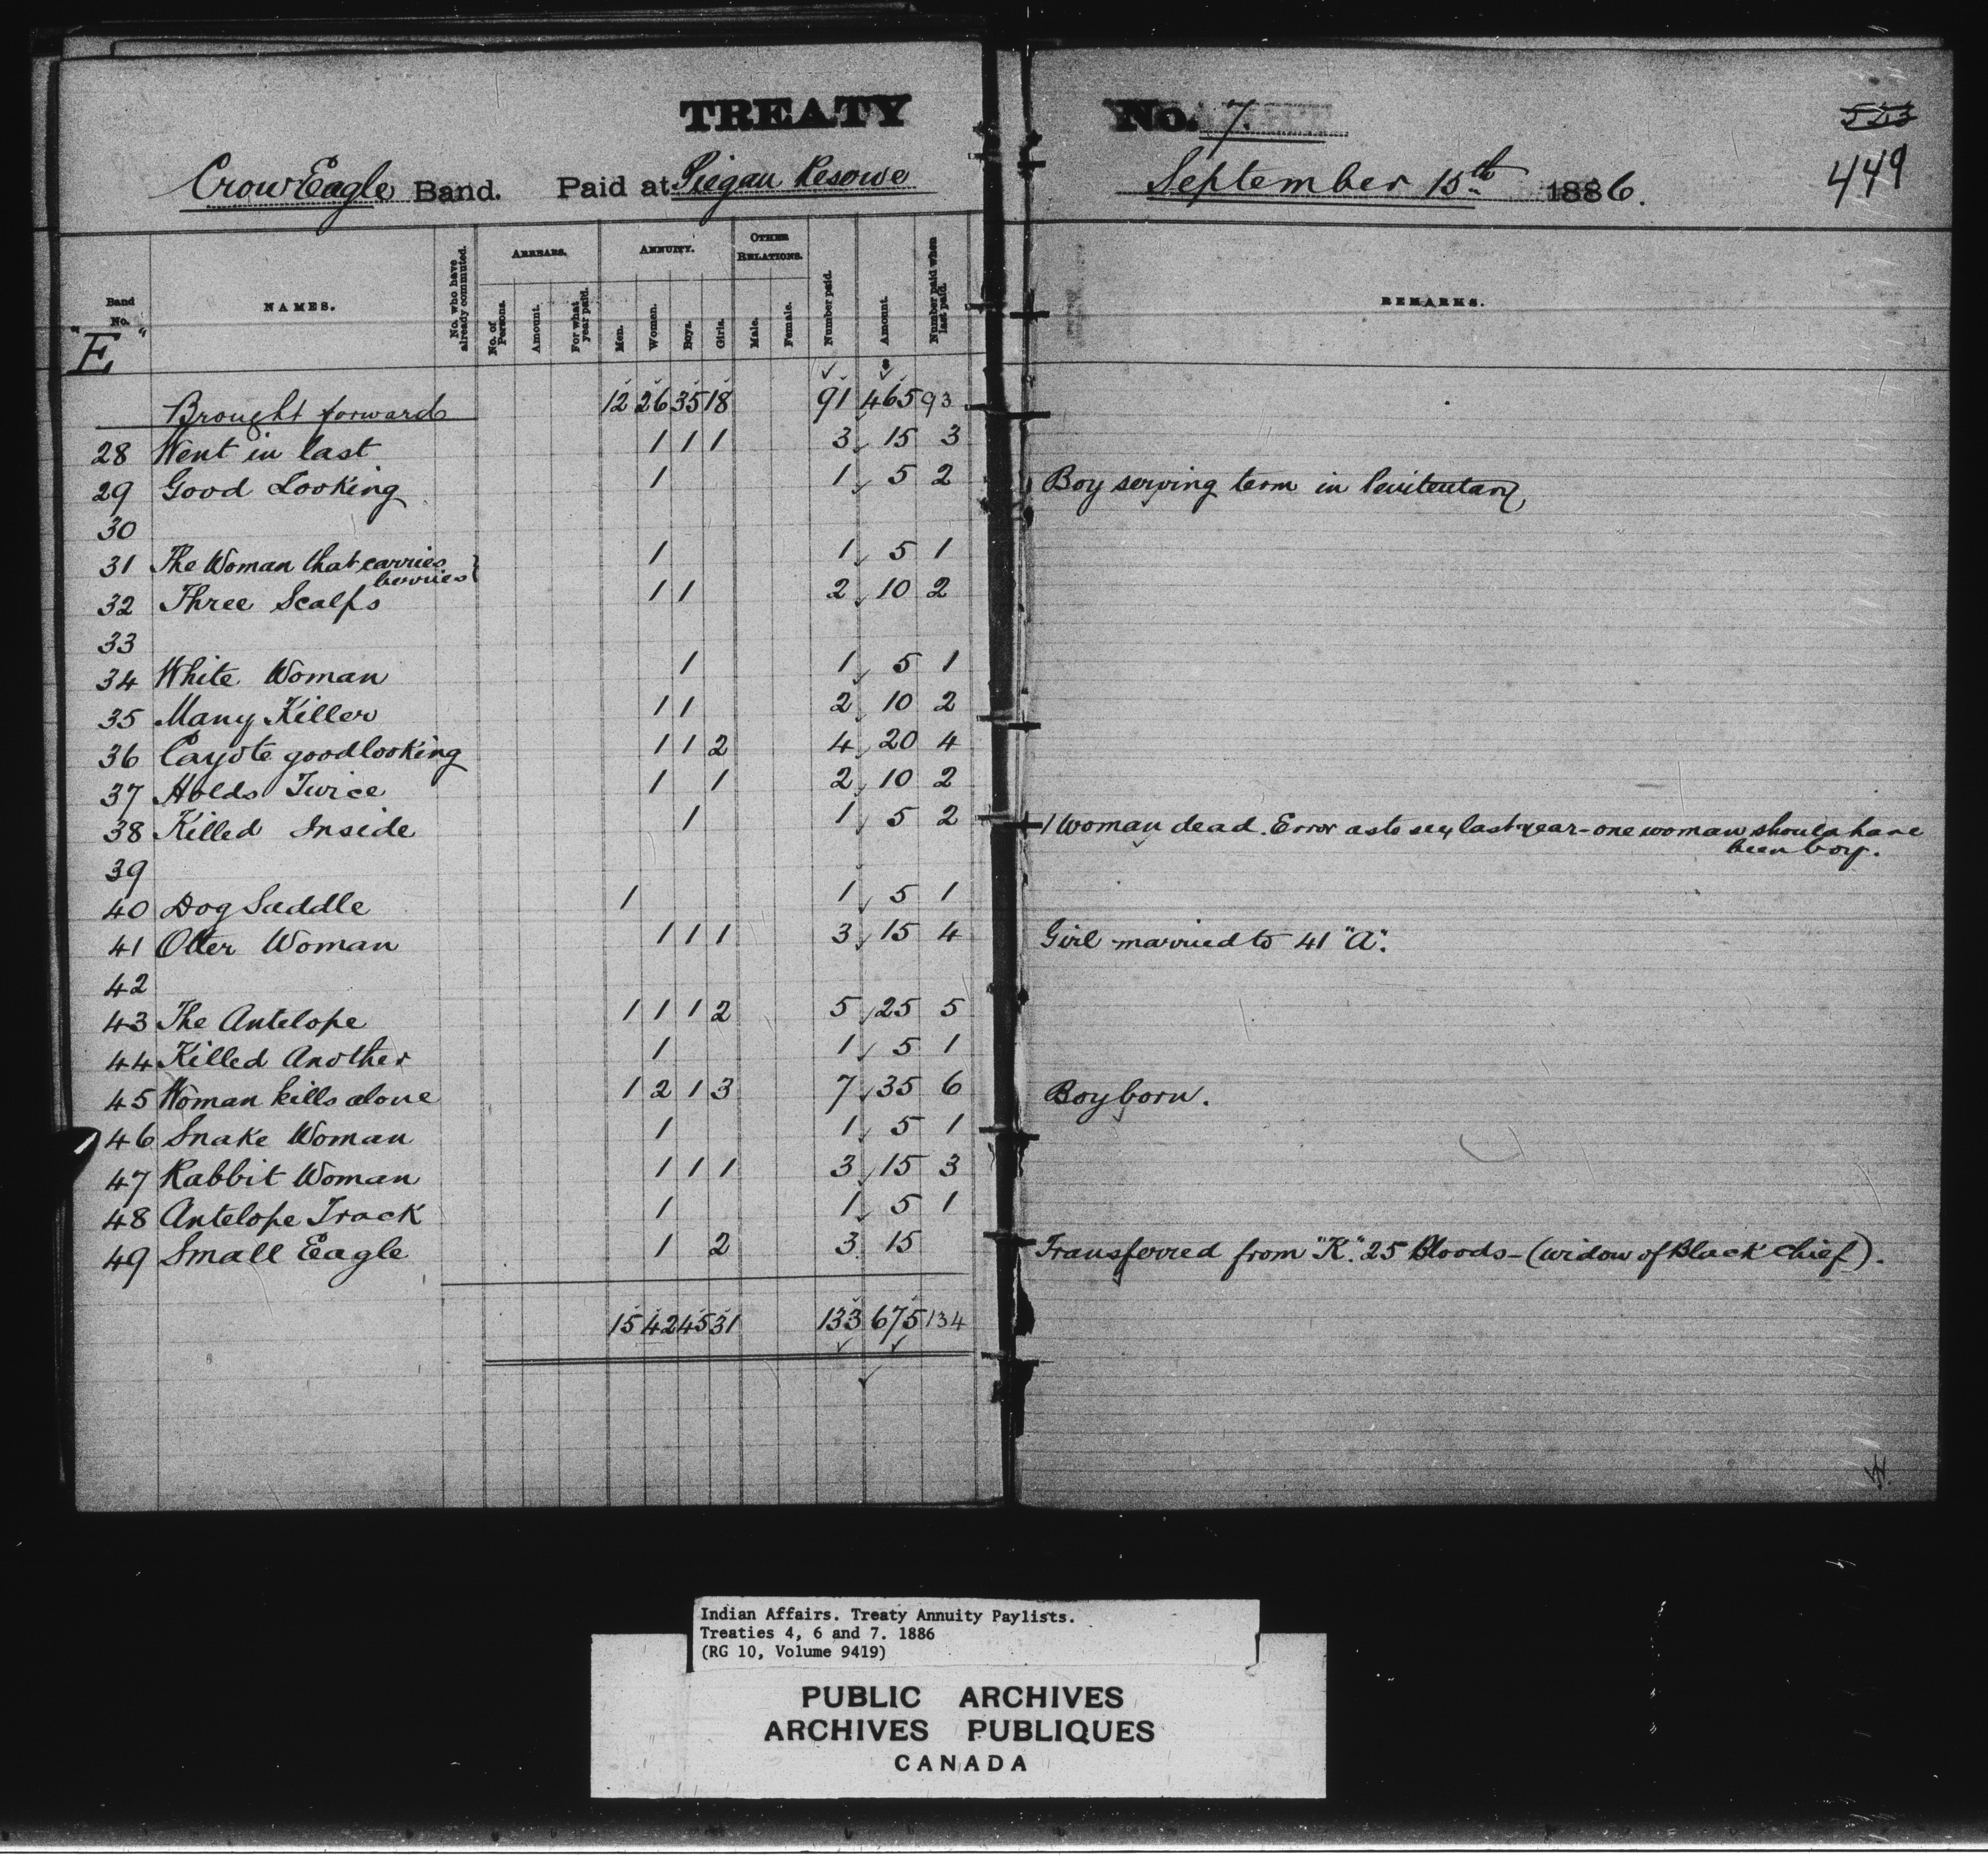 TREATY No. 7.
523
449
Crow Eagle Band. Paid at Piegan Reserve September 15th 1886.
Band No. "E" NAMES. No. who have already commuted. ARREARS. No. of Persons. Amount. For what year paid. ANNUITY. Men. Women. Boys. Girls. OTHER RELATIONS. Male. Female. Number paid. Amount. Number paid when last paid. REMARKS.
Brought forward 12 26 35 18 91 465 93
28 Went in last 1 1 1 3 15 3
29 Good Looking 1 1 5 2 Boy serving term in Penitentary
30
31 The Woman that carries berries 1 1 5 1
32 Three Scalps 1 1 2 10 2
33
34 White Woman 1 1 5 1
35 Many Killer 1 1 2 10 2
36 Cayote goodlooking 1 1 2 4 20 4
37 Holds Twice 1 1 2 10 2
38 Killed Inside 1 1 5 2 1 Woman dead. Error as to sex last year - one woman should have been boy.
39
40 Dog Saddle 1 1 5 1
41 Otter Woman 1 1 1 3 15 4 Girl married to 41 "A".
42
43 The Antelope 1 1 1 2 5 25 5
44 Killed Another 1 1 5 1
45 Woman kills alone 1 2 1 3 7 35 6 Boy born.
46 Snake Woman 1 1 5 1
47 Rabbit Woman 1 1 1 3 15 3
48 Antelope Track 1 1 5 1
49 Small Eagle 1 2 3 15 Transferred from "K". 25 Bloods - (widow of Black Chief).
15 42 45 31 133 675 134
Indian Affairs. Treaty Annuity Paylists.
Treaties 4, 6 and 7. 1886
(RG 10, Volume 9419)
PUBLIC ARCHIVES
ARCHIVES PUBLIQUES
CANADA